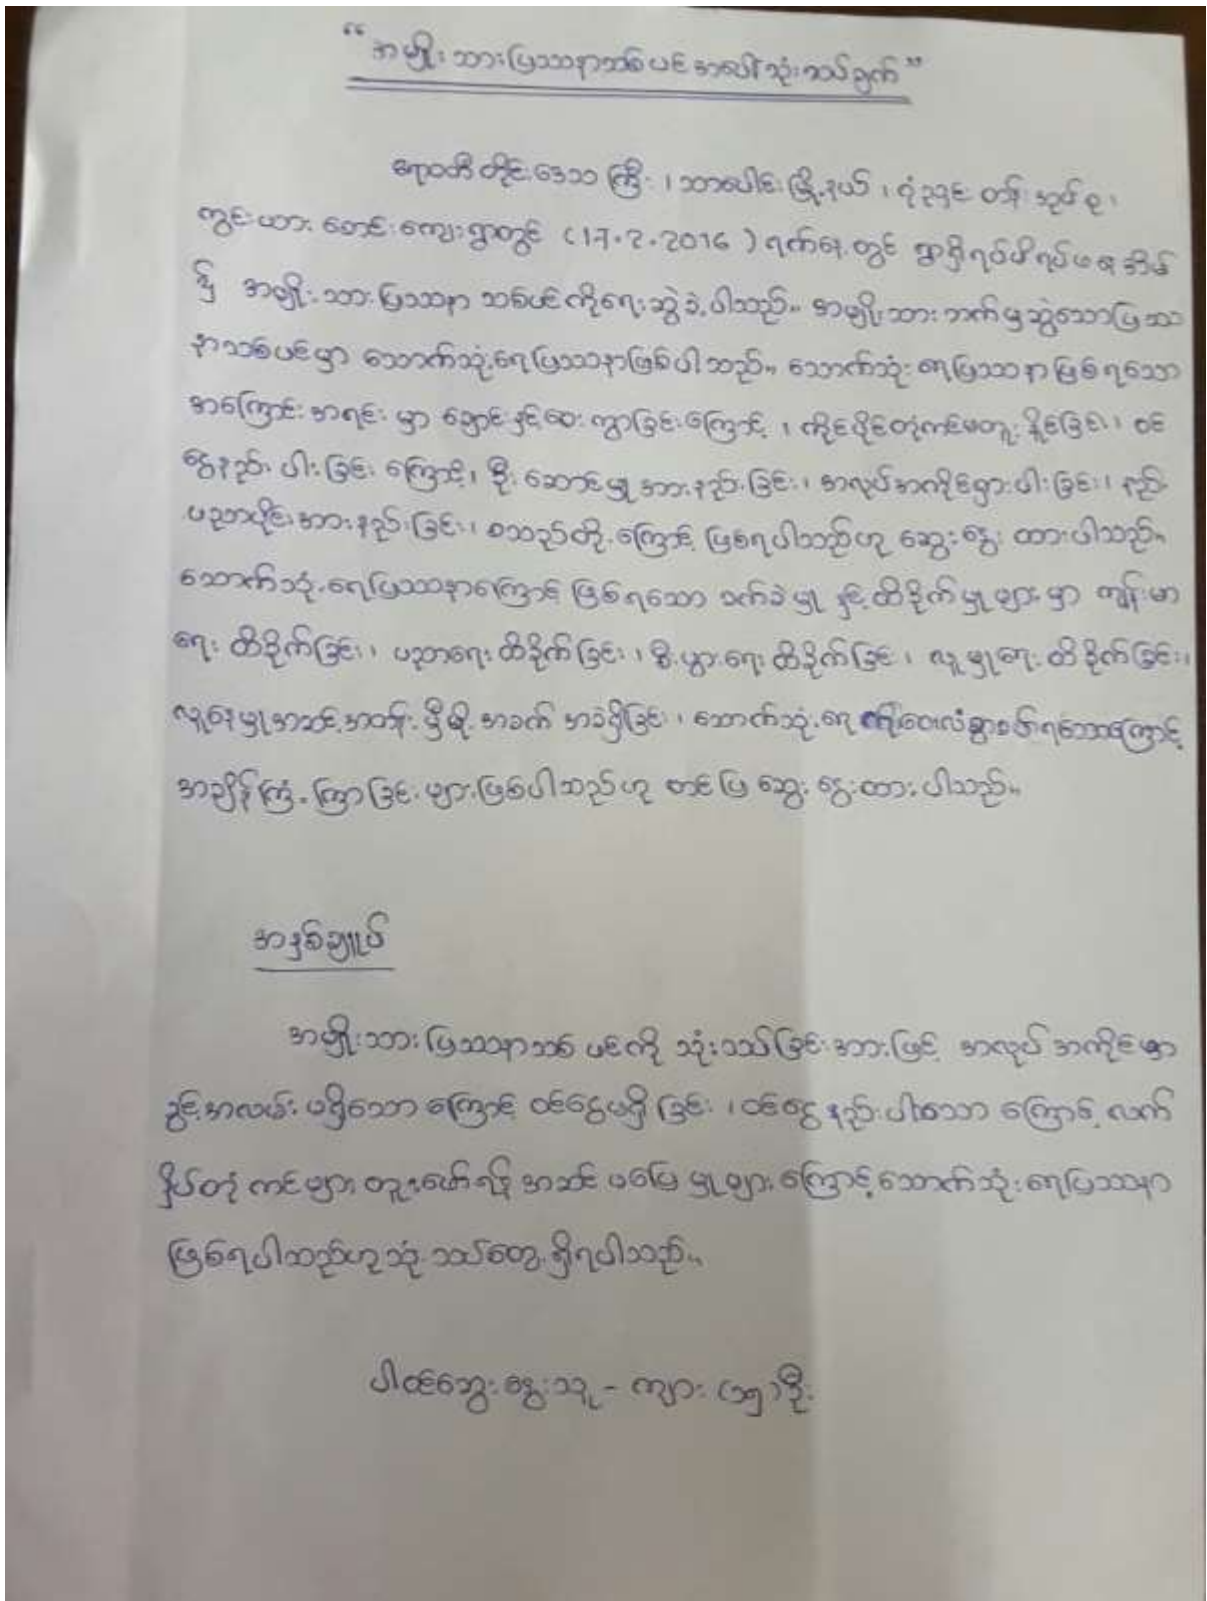 “အမျိုးသားပြဿနာသစ်ပင်အပေါ်သုံးသပ်ချက်”
ဧရာဝတီတိုင်းဒေသကြီး၊ သာပေါင်းမြို့နယ်၊ ဂုံညှင်းတန်းအုပ်စု၊
ကွင်းယား တောင်းကျေးရွာတွင် (17.2.2016) ရက်နေ့တွင် ရွာရှိရပ်မိရပ်ဖအိမ်
၌ အမျိုးသားပြဿနာ သစ်ပင်ကိုရေးဆွဲခဲ့ပါသည်။ အမျိုးသားဘက်မှဆွဲသောပြဿ
နာသစ်ပင်မှာ သောက်သုံးရေပြဿနာဖြစ်ပါသည်။ သောက်သုံးရေပြဿနာဖြစ်ရသော
အကြောင်းအရင်းမှာ ချောင်းနှင့်ဝေးကွာခြင်းကြောင့်၊ ကိုင်ပိုင်တုံကင်မတူးနိူင်ခြင်း၊ ဝင်
ငွေနည်းပါးခြင်းကြောင့်၊ ဦးဆောင်မှုအားနည်းခြင်း၊ အလုပ်အကိုင်ရှားပါးခြင်း၊ နည်း
ပညာပိုင်းအားနည်းခြင်း၊ စသည်တို့ကြောင့် ဖြစ်ရပါသည်ဟု ဆွေးနွေးထားပါသည်။
သောက်သုံးရေပြဿနာကြောင့် ဖြစ်ရသော ခက်ခဲမှုနှင့်ထိခိုက်မှုများမှာ ကျန်းမာ
ရေးထိခိုက်ခြင်း၊ ပညာရေးထိခိုက်ခြင်း၊ စီးပွားရေးထိခိုက်ခြင်း၊ လူမှုရေးထိခိုက်ခြင်း၊
လူနေမှုအဆင့်အတန်းမှီဖို့အခက်အခဲရှိခြင်း၊ သောက်သုံးရေကိုဝေးလံစွာခပ်ရသောကြောင့်
အချိန်ကြန့်ကြာခြင်းများဖြစ်ပါသည်ဟု တင်ပြဆွေးနွေးထားပါသည်။
အနှစ်ချုပ်
အမျိုးသားပြဿနာသစ်ပင်ကို သုံးသပ်ခြင်းအားဖြင့် အလုပ်အကိုင်မှာ
ခွင့်အလမ်းမရှိသောကြောင့် ဝင်ငွေမရှိခြင်း၊ ဝင်ငွေနည်းပါးသောကြောင့် လက်
နှိပ်တုံကင်များတူးဖော်ရန်အဆင်မပြေမှုများကြောင့်သောက်သုံးရေပြဿနာ
ဖြစ်ရပါသည်ဟုသုံးသပ်တွေ့ရှိရပါသည်။
ပါဝင်ဆွေးနွေးသူ - ကျား (၁၅) ဦး